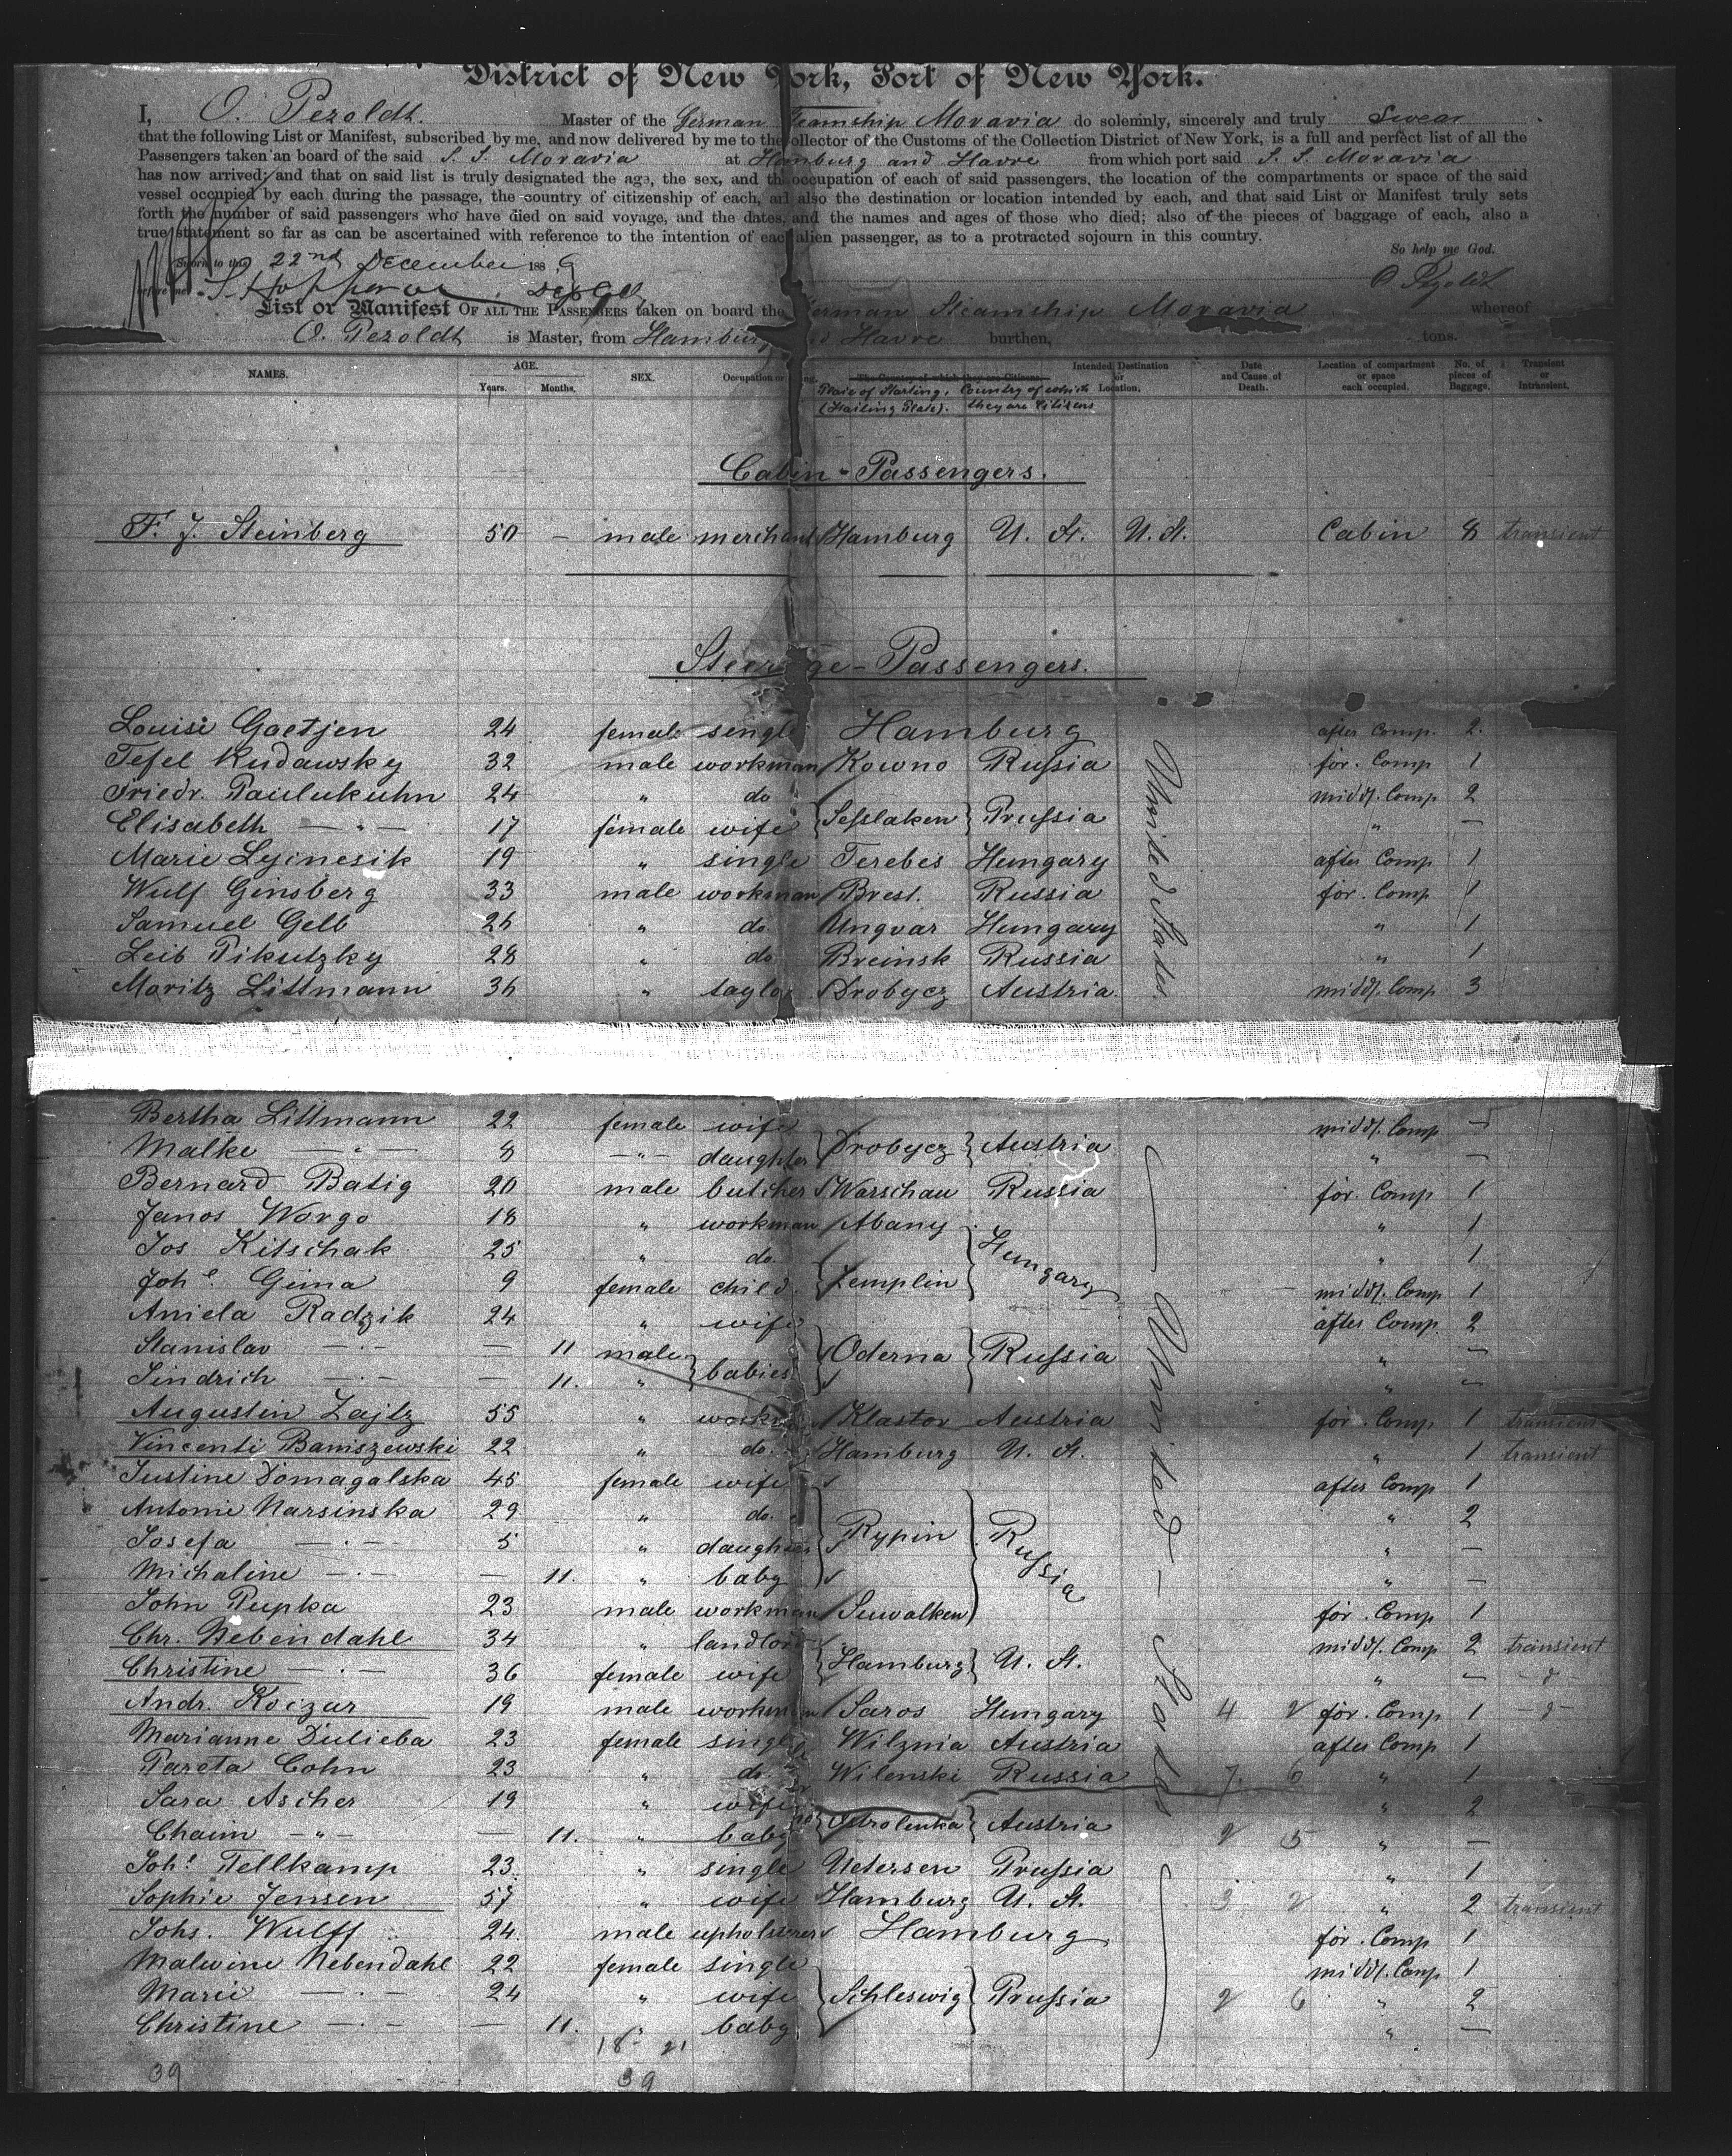 District of New York, Port of New York.
I, O. Pezoldt. Master of the German Steamship Moravia do solemnly, sincerely and truly Swear
that the following List or Manifest, subscribed by me, and now delivered by me to the Collector of the Customs of the Collection District of New York, is a full and perfect list of all the
Passengers taken an board of the said S. S. Moravia at Hamburg and Havre from which port said S. S. Moravia
has now arrived; and that on said list is truly designated the age, the sex, and the occupation of each of said passengers, the location of the compartments or space of the said
vessel occupied by each during the passage, the country of citizenship of each, and also the destination or location intended by each, and that said List or Manifest truly sets
forth the number of said passengers who have died on said voyage, and the dates, and the names and ages of those who died; also of the pieces of baggage of each, also a
true statement so far as can be ascertained with reference to the intention of each alien passenger, as to a protracted sojourn in this country.
So help me God.
Sworn to this 22nd December 1889
before me O Pezoldt
List or Manifest OF ALL THE PASSENGERS taken on board the German Steamship Moravia whereof
O. Pezoldt is Master, from Hamburg and Havre burthen, tons.
NAMES. AGE. Years. Months. SEX. Occupation or The Country of which they are Citizens Intended Destination or Location. Date and Cause of Death. Location of compartment or space each occupied. No. of pieces of Baggage. Transient or Intransient.
Place of Starting, (Hailing Place). Country of which they are Citizens
Cabin-Passengers.
F. J. Steinberg 50 — male merchant Hamburg U. St. U. St. Cabin 8 transient
Steerage-Passengers.
Louise Gaetjen 24 female single Hamburg after Comp. 2.
Tefel Rudawsky 32 male workman Kowno Russia for. Comp 1
Friedr. Paulukuhn 24 " do middl. Comp 2
Elisabeth — " — 17 female wife Sesslaken Prussia " —
Marie Lyinesik 19 " single Terebes Hungary after Comp 1
Wulf Ginsberg 33 male workman Brest. Russia for. Comp 1
Samuel Gelb 26 " do. Ungvar Hungary " 1
Leib Pikutzky 28 " do Breinsk Russia " 1
Moritz Littmann 36 " taylor Drobycz Austria. middl. Comp 3
United States.
Bertha Littmann 22 female wife middl. Comp —
Malke — " — 8 — " — daughter Drobycz Austria " —
Bernard Batig 20 male butcher Warschau Russia for. Comp 1
Janos Wargo 18 " workman Abany " 1
Jos Kitschak 25 " do. Hungary " 1
Joh. Gima 9 female child. Zemplin middl. Comp 1
Aniela Radzik 24 " wife after Comp. 2
Stanislav — " — — 11 male Oderna Russia " —
Sindrich — " — — 11. " babies " —
Augustin Zajtz 55 " workm Klastor Austria for. Comp 1 transient
Vincenti Baniszewski 22 " do. Hamburg U. St. " 1 transient
Justine Domagalska 45 female wife after Comp 1
Antonie Narsinska 29 " do. " 2
Josefa — " — 5 " daughter Rypin Russia " —
Michaline — " — — 11. " baby " —
John Pupka 23 male workman Suwalken for. Comp 1
Chr. Nebendahl 34 " landlord middl. Comp 2 transient
Christine — " — 36 female wife Hamburg U. St. " — — d
Andr. Koczar 19 male workman Saros Hungary 4 2 for. Comp 1 — d —
Marianne Dulieba 23 female single Wilznia Austria after Comp 1
Pareta Cohn 23 " do. Wilenski Russia 7. 6 " 1
Sara Ascher 19 " wife " 2
Chaim — " — — 11. " baby Ostrolenka Austria 2 5 " —
Joh. Tellkamp 23. " single Uetersen Prussia " 1
Sophie Jensen 57 " wife Hamburg U. St. 3 2 " 2 transient
Johs. Wulff 24. male upholsterer Hamburg for. Comp 1
Malwine Nebendahl 22 female single middl. Comp 1
Marie — " — 24 " wife Schleswig Prussia 2 6 " 2
Christine — " — — 11. " baby " —
— United — States
18 - 21
39 39